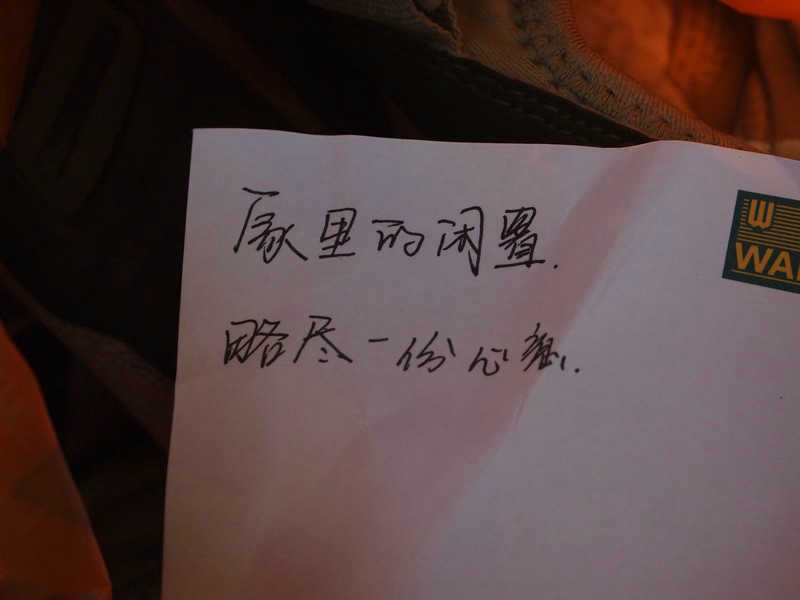 家里的闲置.
略尽一份心意.
W
WA